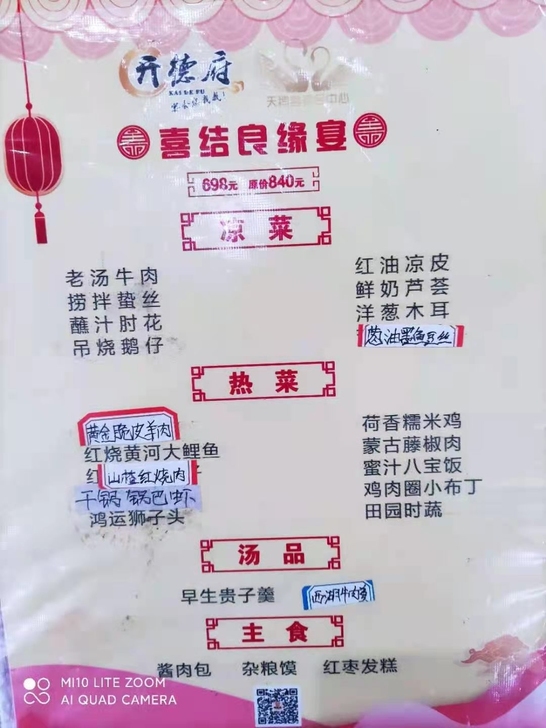 开德府
KAI DE FU
喜结良缘宴
698元 原价840元
凉菜
老汤牛肉
捞拌蛰丝
蘸汁肘花
吊烧鹅仔
红油凉皮
鲜奶芦荟
洋葱木耳
葱油墨鱼豆丝
热菜
黄金脆皮羊肉
红烧黄河大鲤鱼
山楂红烧肉
干锅锅巴虾
鸿运狮子头
荷香糯米鸡
蒙古藤椒肉
蜜汁八宝饭
鸡肉圈小布丁
田园时蔬
汤品
早生贵子羹 西湖牛肉羹
主食
酱肉包 杂粮馍 红枣发糕
MI10 LITE ZOOM
AI QUAD CAMERA